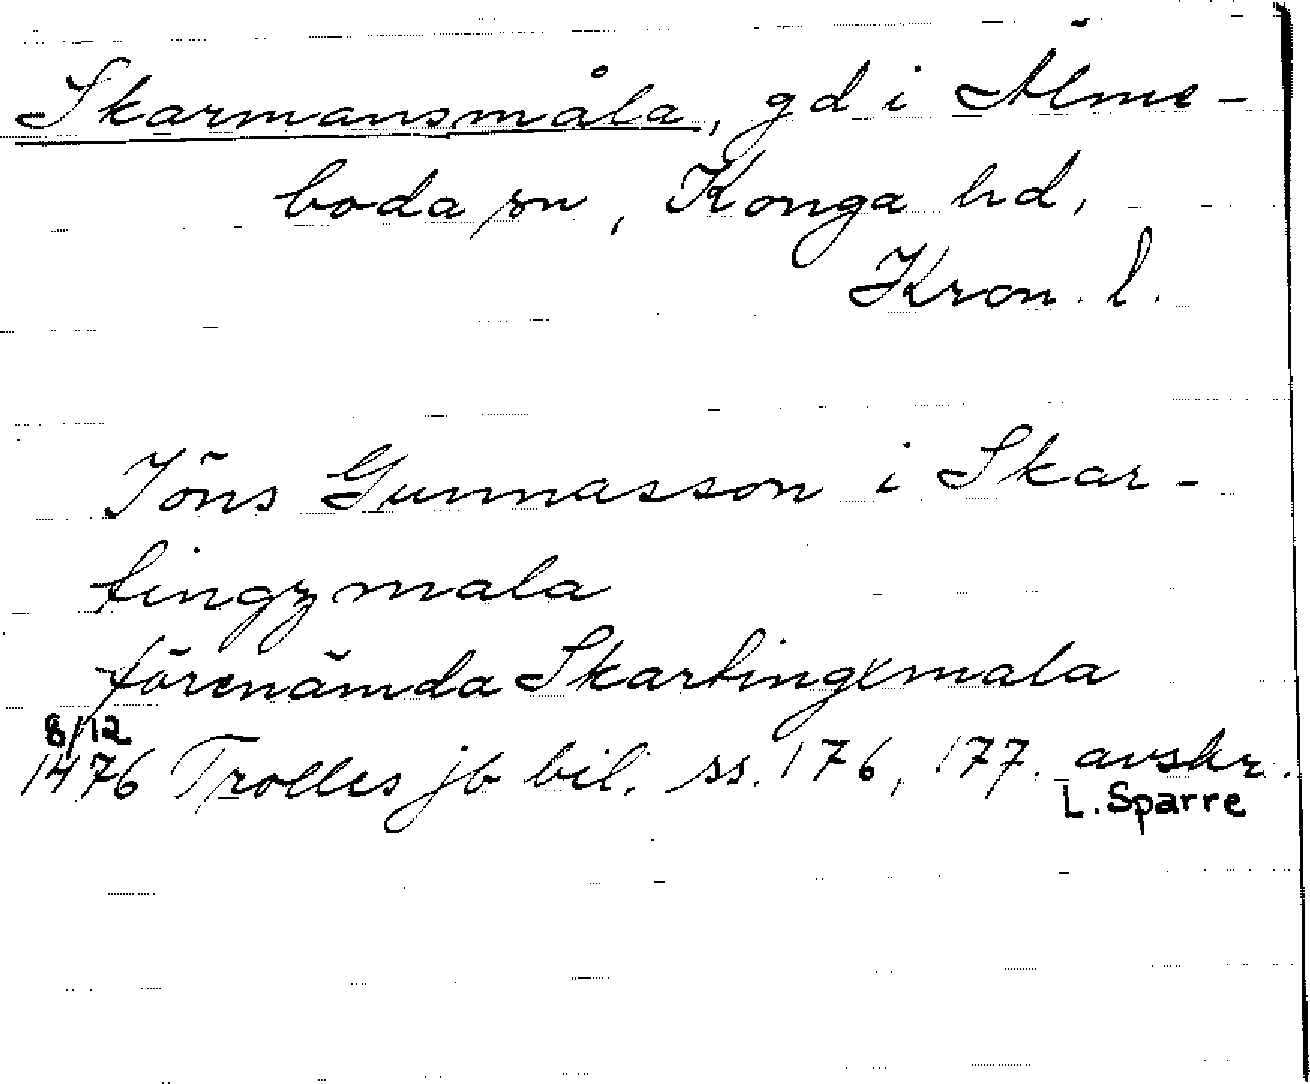 Skarmansmåla, gd i Älme-
boda sn, Konga hd,
Kron. l.
Jöns Gunnasson i Skar-
tingzmala
förenämda Skartingxmala
8/12
1476 Trolles jb bil. ss. 176, 177. avskr.
L. Sparre